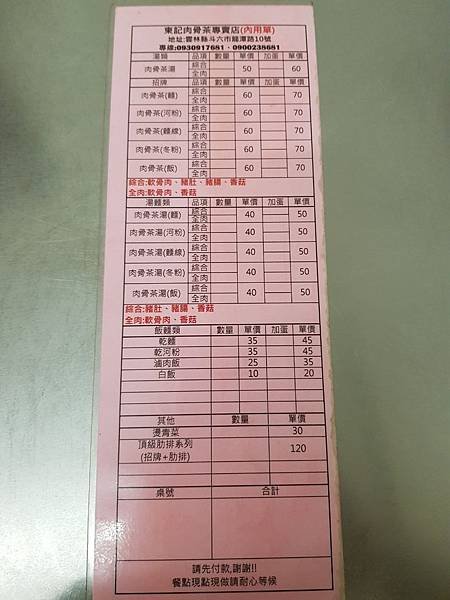 東記肉骨茶專賣店(內用單)
地址:雲林縣斗六市龍潭路10號
專線:0930917681、0900238681
湯類 品項 數量 單價 加蛋 單價
肉骨茶湯 綜合 全肉 50 60
招牌 品項 數量 單價 加蛋 單價
肉骨茶(麵) 綜合 全肉 60 70
肉骨茶(河粉) 綜合 全肉 60 70
肉骨茶(麵線) 綜合 全肉 60 70
肉骨茶(冬粉) 綜合 全肉 60 70
肉骨茶(飯) 綜合 全肉 60 70
綜合:軟骨肉、豬肚、豬腸、香菇
全肉:軟骨肉、香菇
湯麵類 品項 數量 單價 加蛋 單價
肉骨茶湯(麵) 綜合 全肉 40 50
肉骨茶湯(河粉) 綜合 全肉 40 50
肉骨茶湯(麵線) 綜合 全肉 40 50
肉骨茶湯(冬粉) 綜合 全肉 40 50
肉骨茶湯(飯) 綜合 全肉 40 50
綜合:豬肚、豬腸、香菇
全肉:軟骨肉、香菇
飯麵類 數量 單價 加蛋 單價
乾麵 35 45
乾河粉 35 45
滷肉飯 25 35
白飯 10 20
其他 數量 單價
燙青菜 30
頂級肋排系列 120
(招牌+肋排)
桌號 合計
請先付款,謝謝!!
餐點現點現做請耐心等候